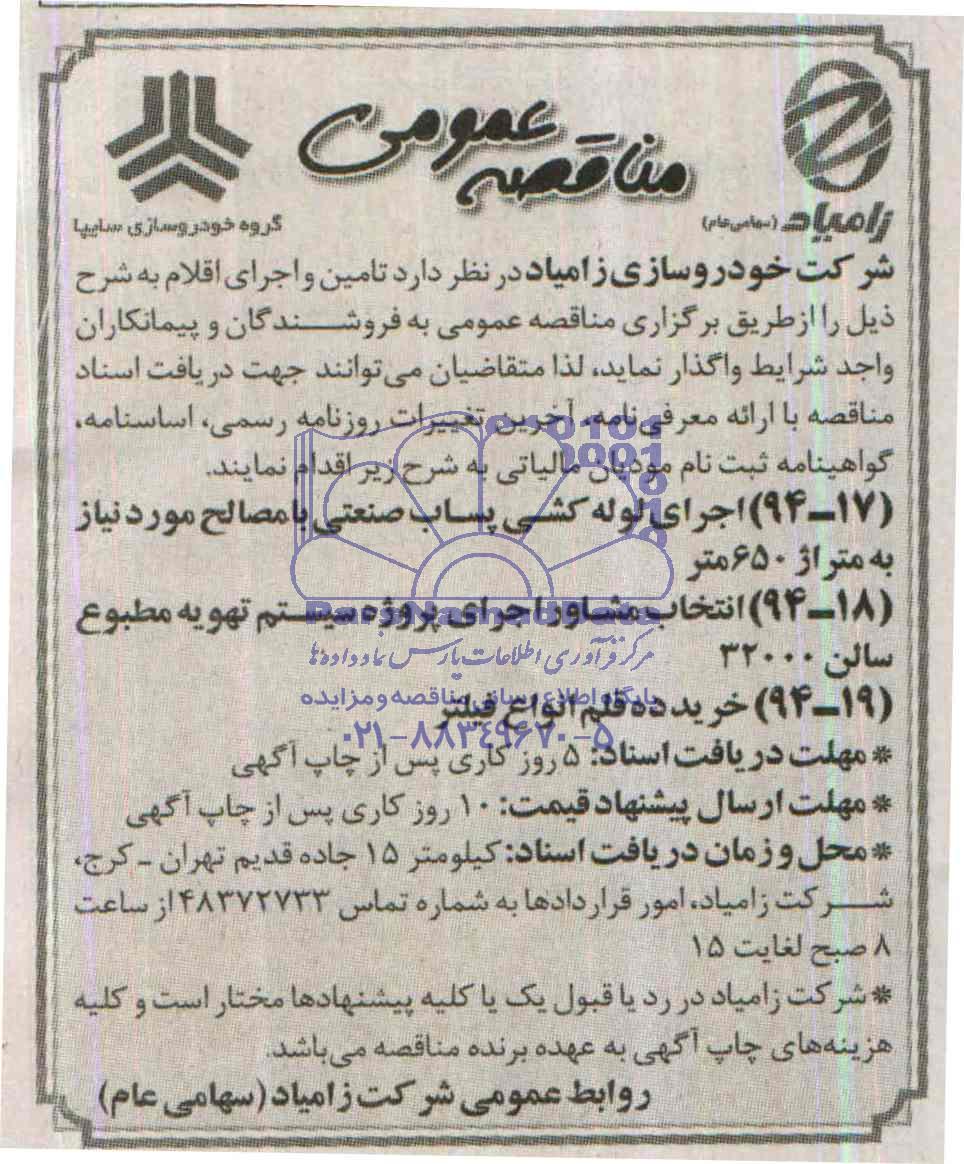 مناقصه عمومی
زامیاد (سهامی عام)
گروه خودروسازی سایپا
شرکت خودروسازی زامیاد در نظر دارد تامین و اجرای اقلام به شرح
ذیل را از طریق برگزاری مناقصه عمومی به فروشندگان و پیمانکاران
واجد شرایط واگذار نماید، لذا متقاضیان می‌توانند جهت دریافت اسناد
مناقصه با ارائه معرفی‌نامه، آخرین تغییرات روزنامه رسمی، اساسنامه،
گواهینامه ثبت نام مودیان مالیاتی به شرح زیر اقدام نمایند.
(۹۴-۱۷) اجرای لوله کشی پساب صنعتی با مصالح مورد نیاز
به متراژ ۶۵۰ متر
(۹۴-۱۸) انتخاب مشاور اجرای پروژه سیستم تهویه مطبوع
سالن ۳۲۰۰۰
مرکز فرآوری اطلاعات پارس نماد داده‌ها
(۹۴-۱۹) خرید ده قلم انواع فیلتر
پایگاه اطلاع رسانی مناقصه و مزایده
۰۲۱-۸۸۳۴۹۶۷۰-۵
* مهلت دریافت اسناد: ۵ روز کاری پس از چاپ آگهی
* مهلت ارسال پیشنهاد قیمت: ۱۰ روز کاری پس از چاپ آگهی
* محل و زمان دریافت اسناد: کیلومتر ۱۵ جاده قدیم تهران - کرج،
شرکت زامیاد، امور قراردادها به شماره تماس ۴۸۳۷۲۷۳۳ از ساعت
۸ صبح لغایت ۱۵
* شرکت زامیاد در رد یا قبول یک یا کلیه پیشنهادها مختار است و کلیه
هزینه‌های چاپ آگهی به عهده برنده مناقصه می‌باشد.
روابط عمومی شرکت زامیاد (سهامی عام)